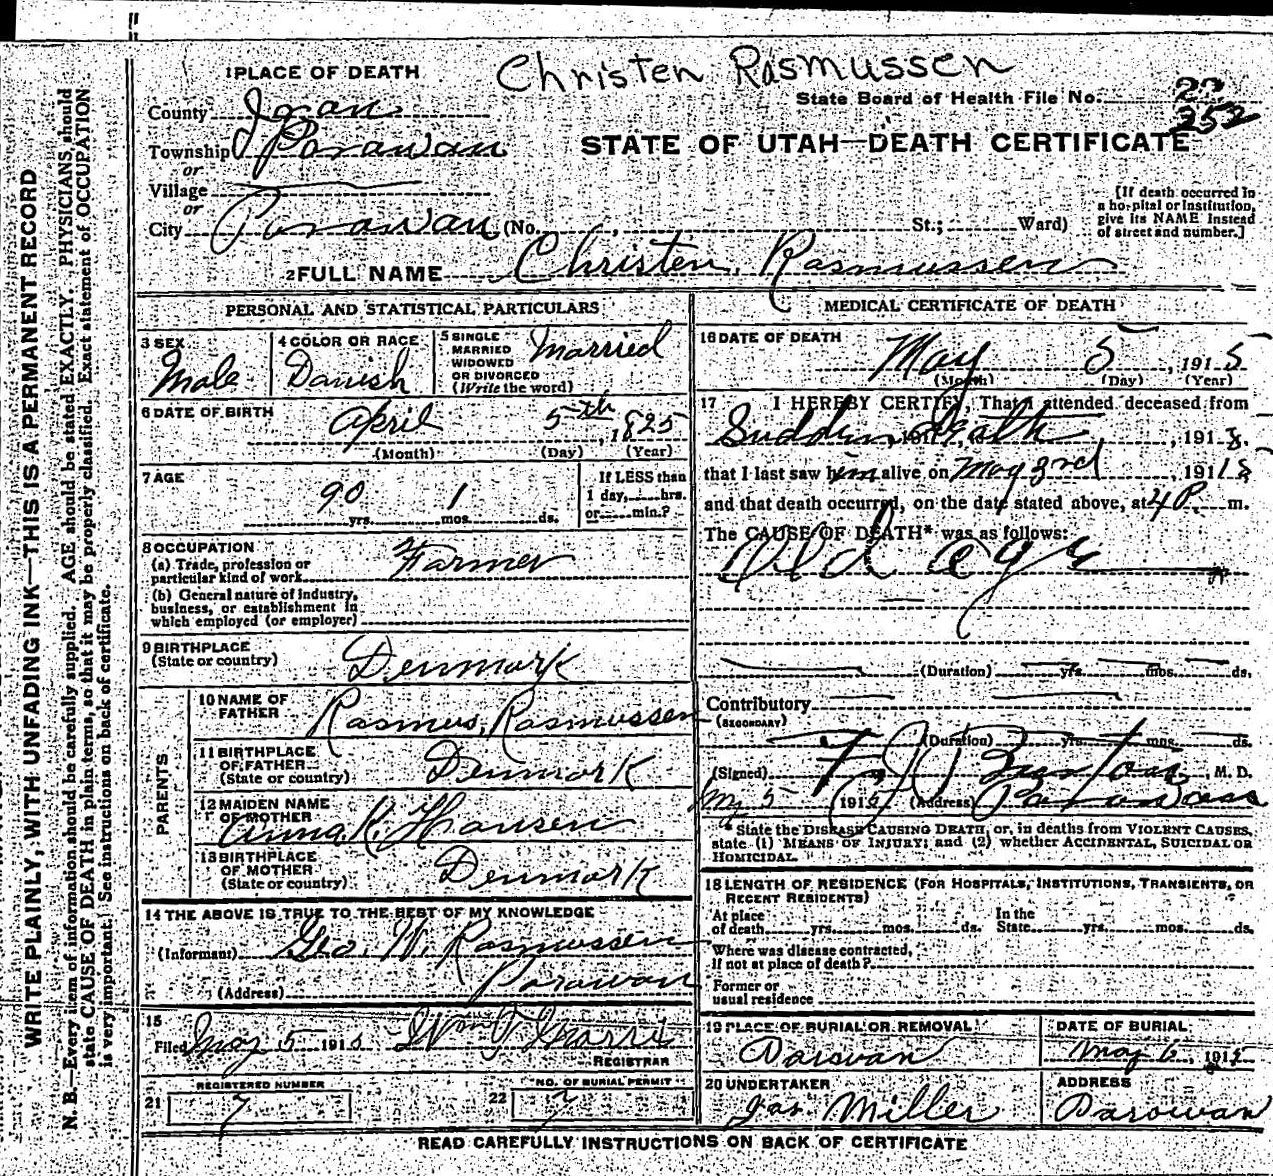 Christen Rasmussen
1 PLACE OF DEATH
State Board of Health File No.
252
County Iron
Township Parowan
STATE OF UTAH—DEATH CERTIFICATE
or
Village
or
City Parowan (No. , St.; Ward)
[If death occurred in a hospital or institution, give its NAME instead of street and number.]
2 FULL NAME Christen Rasmussen
PERSONAL AND STATISTICAL PARTICULARS
3 SEX Male
4 COLOR OR RACE Danish
5 SINGLE MARRIED WIDOWED OR DIVORCED (Write the word) Married
6 DATE OF BIRTH April 5th, 1825
(Month) (Day) (Year)
7 AGE 90 yrs. 1 mos. ds.
If LESS than 1 day, hrs. or min.?
8 OCCUPATION
(a) Trade, profession or particular kind of work Farmer
(b) General nature of industry, business, or establishment in which employed (or employer)
9 BIRTHPLACE (State or country) Denmark
PARENTS
10 NAME OF FATHER Rasmus Rasmussen
11 BIRTHPLACE OF FATHER (State or country) Denmark
12 MAIDEN NAME OF MOTHER Anna K. Hansen
13 BIRTHPLACE OF MOTHER (State or country) Denmark
14 THE ABOVE IS TRUE TO THE BEST OF MY KNOWLEDGE
(Informant) Geo. W. Rasmussen
(Address) Parowan
15 Filed May 5 1915 Wm
REGISTRAR
REGISTERED NUMBER
21 7
NO. OF BURIAL PERMIT
22 7
MEDICAL CERTIFICATE OF DEATH
16 DATE OF DEATH May 5, 1915
(Month) (Day) (Year)
17 I HEREBY CERTIFY, That I attended deceased from
Sudden death , 191
that I last saw him alive on May 3rd 1915
and that death occurred, on the date stated above, at 4 P. m.
The CAUSE OF DEATH* was as follows:
Old age
(Duration) yrs. mos. ds.
Contributory
(SECONDARY)
(Duration) yrs. mos. ds.
(Signed) Burton, M. D.
May 5 1915 (Address) Parowan
* State the DISEASE CAUSING DEATH, or, in deaths from VIOLENT CAUSES, state (1) MEANS OF INJURY; and (2) whether ACCIDENTAL, SUICIDAL OR HOMICIDAL.
18 LENGTH OF RESIDENCE (FOR HOSPITALS, INSTITUTIONS, TRANSIENTS, OR RECENT RESIDENTS)
At place of death yrs. mos. ds. In the State yrs. mos. ds.
Where was disease contracted, If not at place of death?
Former or usual residence
19 PLACE OF BURIAL OR REMOVAL Parowan
DATE OF BURIAL May 6, 1915
20 UNDERTAKER Jas. Miller
ADDRESS Parowan
READ CAREFULLY INSTRUCTIONS ON BACK OF CERTIFICATE
WRITE PLAINLY, WITH UNFADING INK—THIS IS A PERMANENT RECORD
N. B.—Every item of information should be carefully supplied. AGE should be stated EXACTLY. PHYSICIANS should
state CAUSE OF DEATH in plain terms, so that it may be properly classified. Exact statement of OCCUPATION
is very important. See instructions on back of certificate.